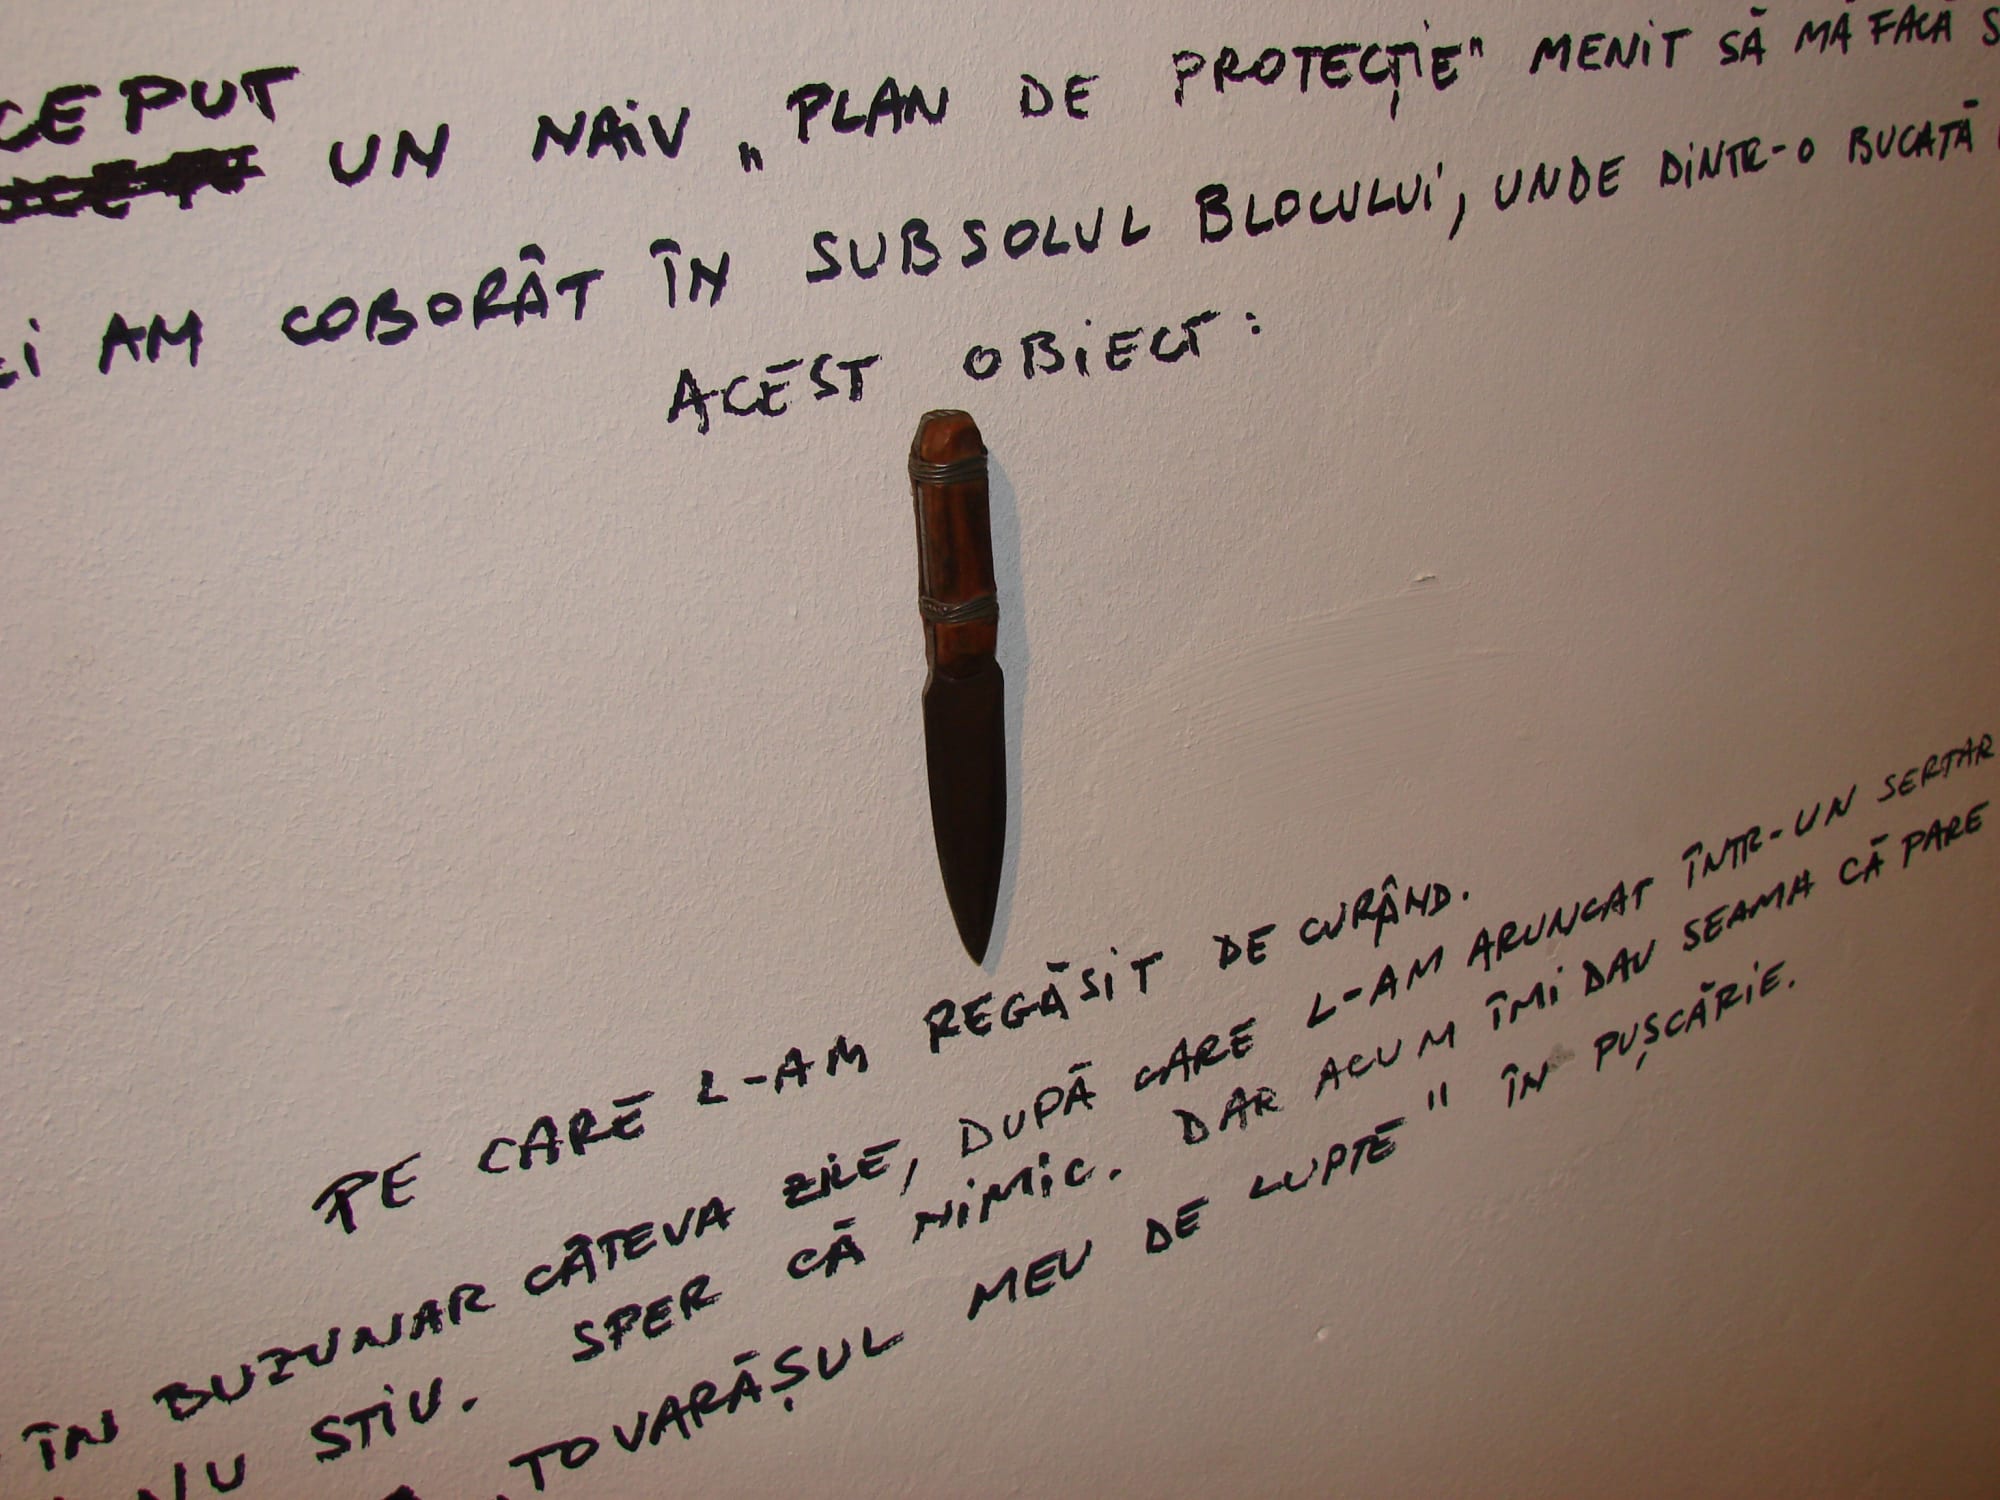 CEPUT
UN NAIV „PLAN DE PROTECȚIE" MENIT SĂ MĂ FACĂ S
EI AM COBORÂT ÎN SUBSOLUL BLOCULUI, UNDE DINTR-O BUCATĂ
ACEST OBIECT:
PE CARE L-AM REGĂSIT DE CURÂND.
ÎN BUZUNAR CÂTEVA ZILE, DUPĂ CARE L-AM ARUNCAT ÎNTR-UN SERTAR
NU STIU. SPER CĂ NIMIC. DAR ACUM ÎMI DAU SEAMA CĂ PARE
TOVARĂȘUL MEU DE LUPTE" ÎN PUȘCĂRIE.